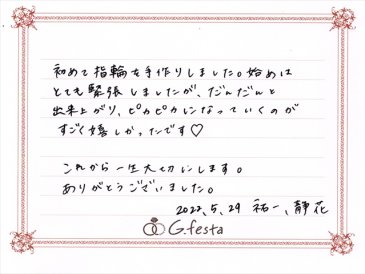 初めて指輪を手作りしました。始めは
とても緊張しましたが、だんだんと
出来上がり、ピカピカになっていくのが
すごく嬉しかったです♡
これから一生大切にします。
ありがとうございました。
2022.5.29 祐一、静花
G.festa